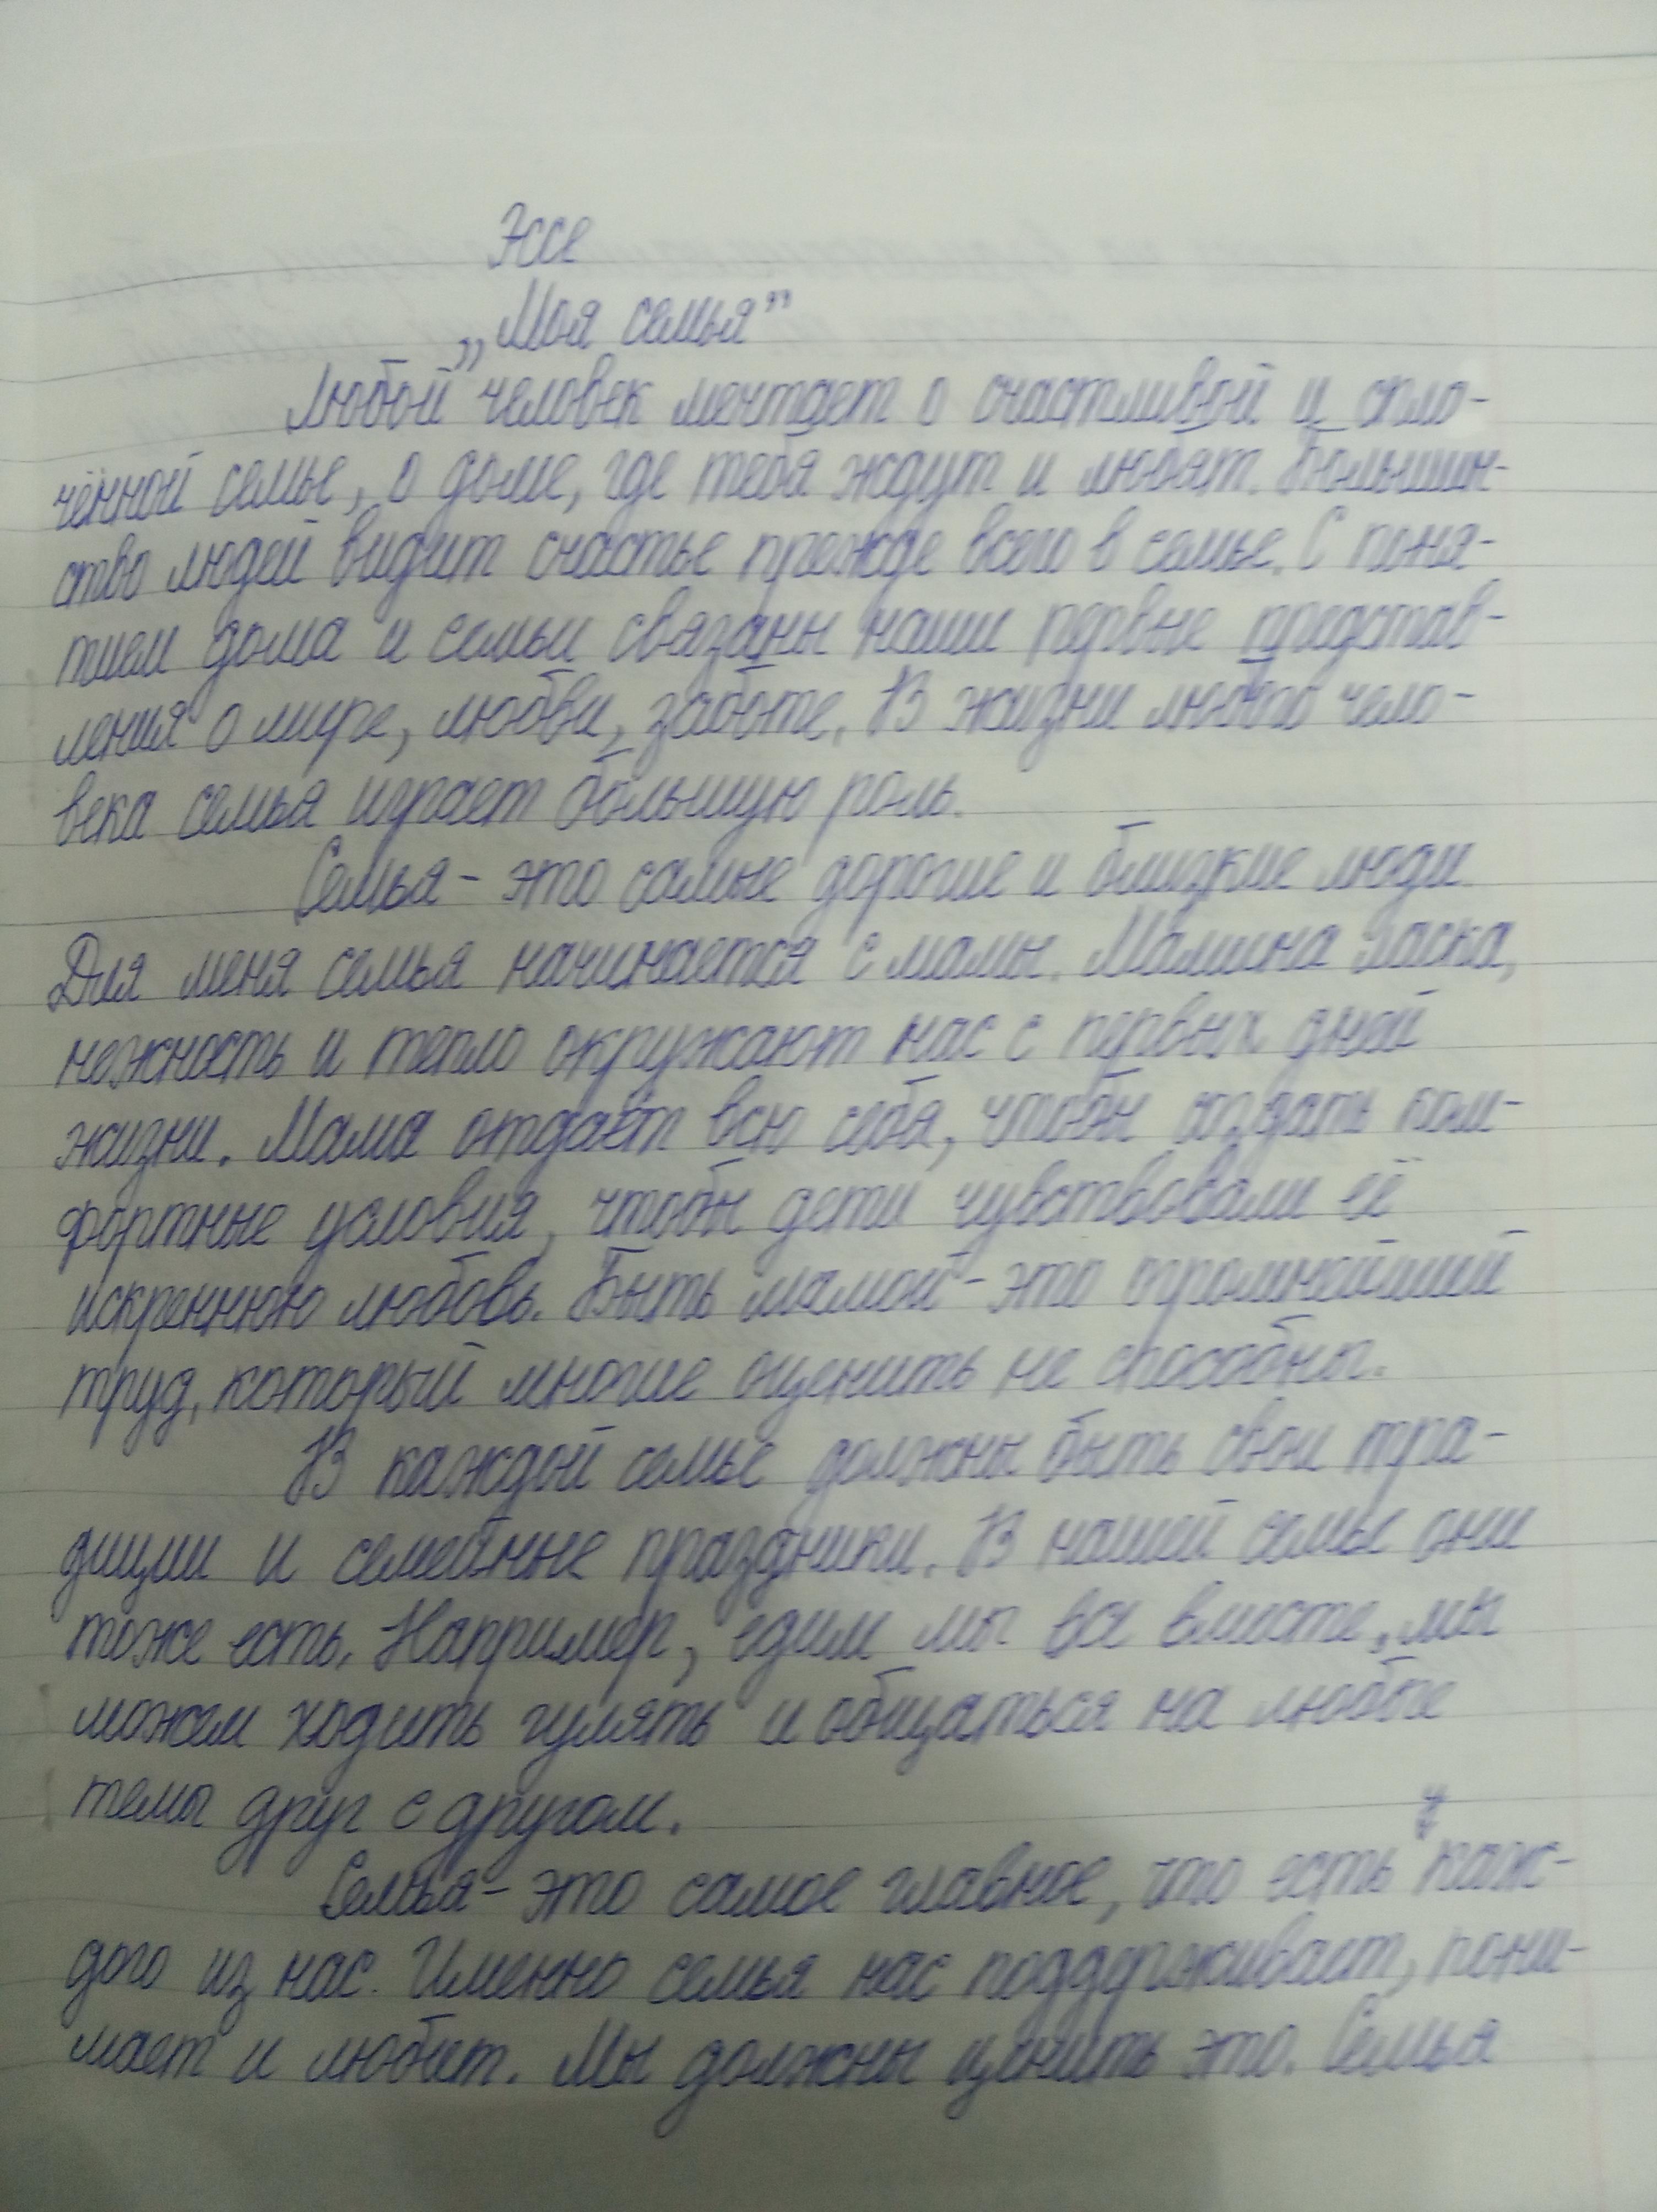 Эссе
„Моя семья”
Любой человек мечтает о счастливой и спло-
чённой семье, о доме, где тебя ждут и любят. Большин-
ство людей видит счастье прежде всего в семье. С поня-
тием дома и семьи связаны наши первые представ-
ления о мире, любви, заботе. В жизни любого чело-
века семья играет большую роль.
Семья - это самые дорогие и близкие люди
Для меня семья начинается с мамы. Мамина ласка,
нежность и тепло окружают нас с первых дней
жизни. Мама отдаёт всю себя, чтобы создать ком-
фортные условия, чтобы дети чувствовали её
искреннюю любовь. Быть мамой - это огромнейший
труд, который многие оценить не способны.
В каждой семье должны быть свои тра-
диции и семейные праздники. В нашей семье они
тоже есть. Например, едим мы все вместе, мы
можем ходить гулять и общаться на любые
темы друг с другом.
у
Семья - это самое главное, что есть каж-
дого из нас. Именно семья нас поддерживает, пони-
мает и любит. Мы должны ценить это. Семья